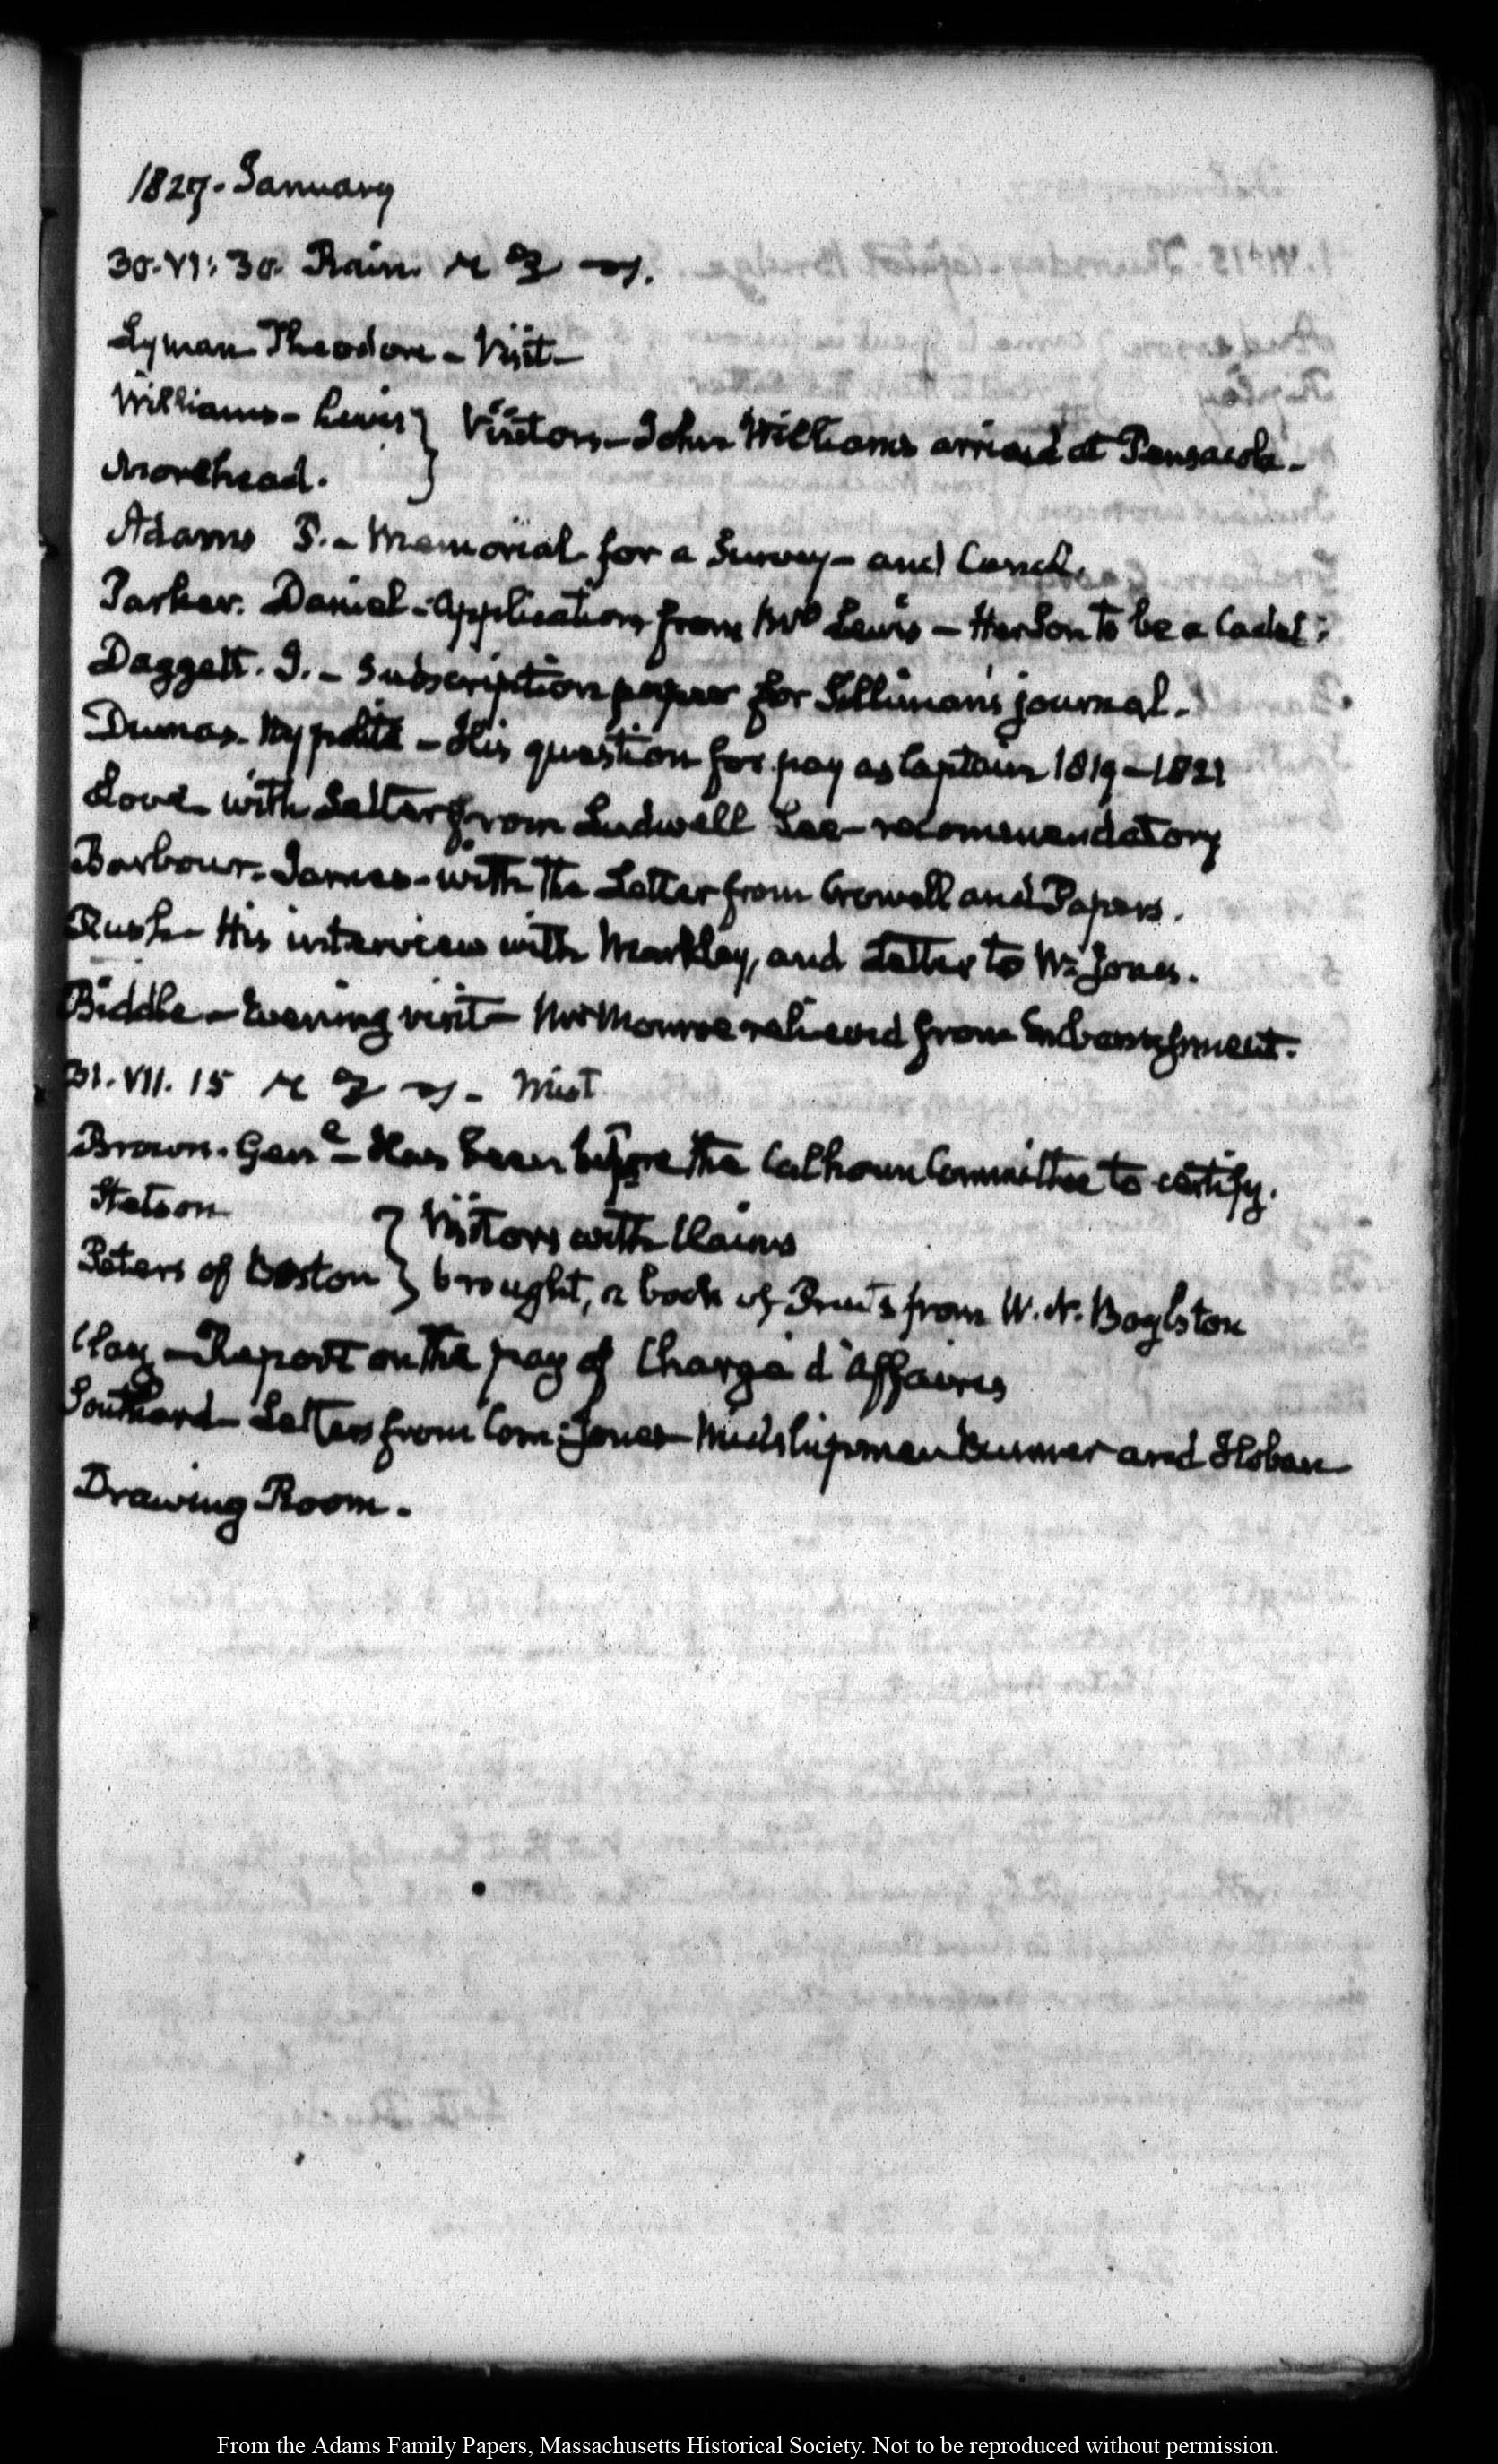 1827. January
30. VI: 30. Rain.
Lyman Theodore – Visit –
Williams – Lewis } Visitors – John Williams arrived at Pensacola –
Morehead. }
Adams P. – Memorial for a Survey – and Canal.
Parker. Daniel – Application from Mrs Lewis – Her Son to be a Cadet:
Daggett. D. – Subscription paper for Silliman's journal.
Dumas. Hypolite – His question for pay as Captain 1819 – 1821
Love – with Letter from Ludwell Lee – recommendatory
Barbour. James – with the Letter from Crowell and Papers.
Rush – His interview with Markley, and Letter to Wm Jones.
Biddle – Evening visit – Mr Monroe relieved from Embarrassment.
31. VII. 15 – Mist
Brown. Genl – Has been before the Calhoun Committee to certify.
Stetson } Visitors with Claims
Peters of Boston } brought, a book of Fruits from W. N. Boylston
Clay – Report on the pay of Chargé d'Affaires
Southard – Letters from Com: Jones – Midshipman and Hoban
Drawing Room.
From the Adams Family Papers, Massachusetts Historical Society. Not to be reproduced without permission.